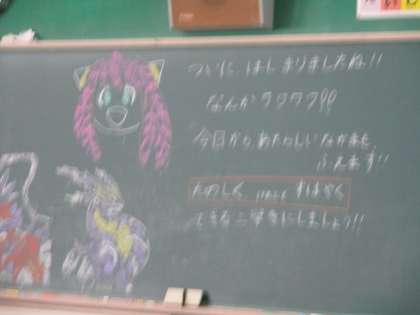 ついに はじまりましたね!!
なんかワクワク!!
今日から あたらしいなかまも
ふえます!!
たのしく すばやく
できる二学きにしましょう!!